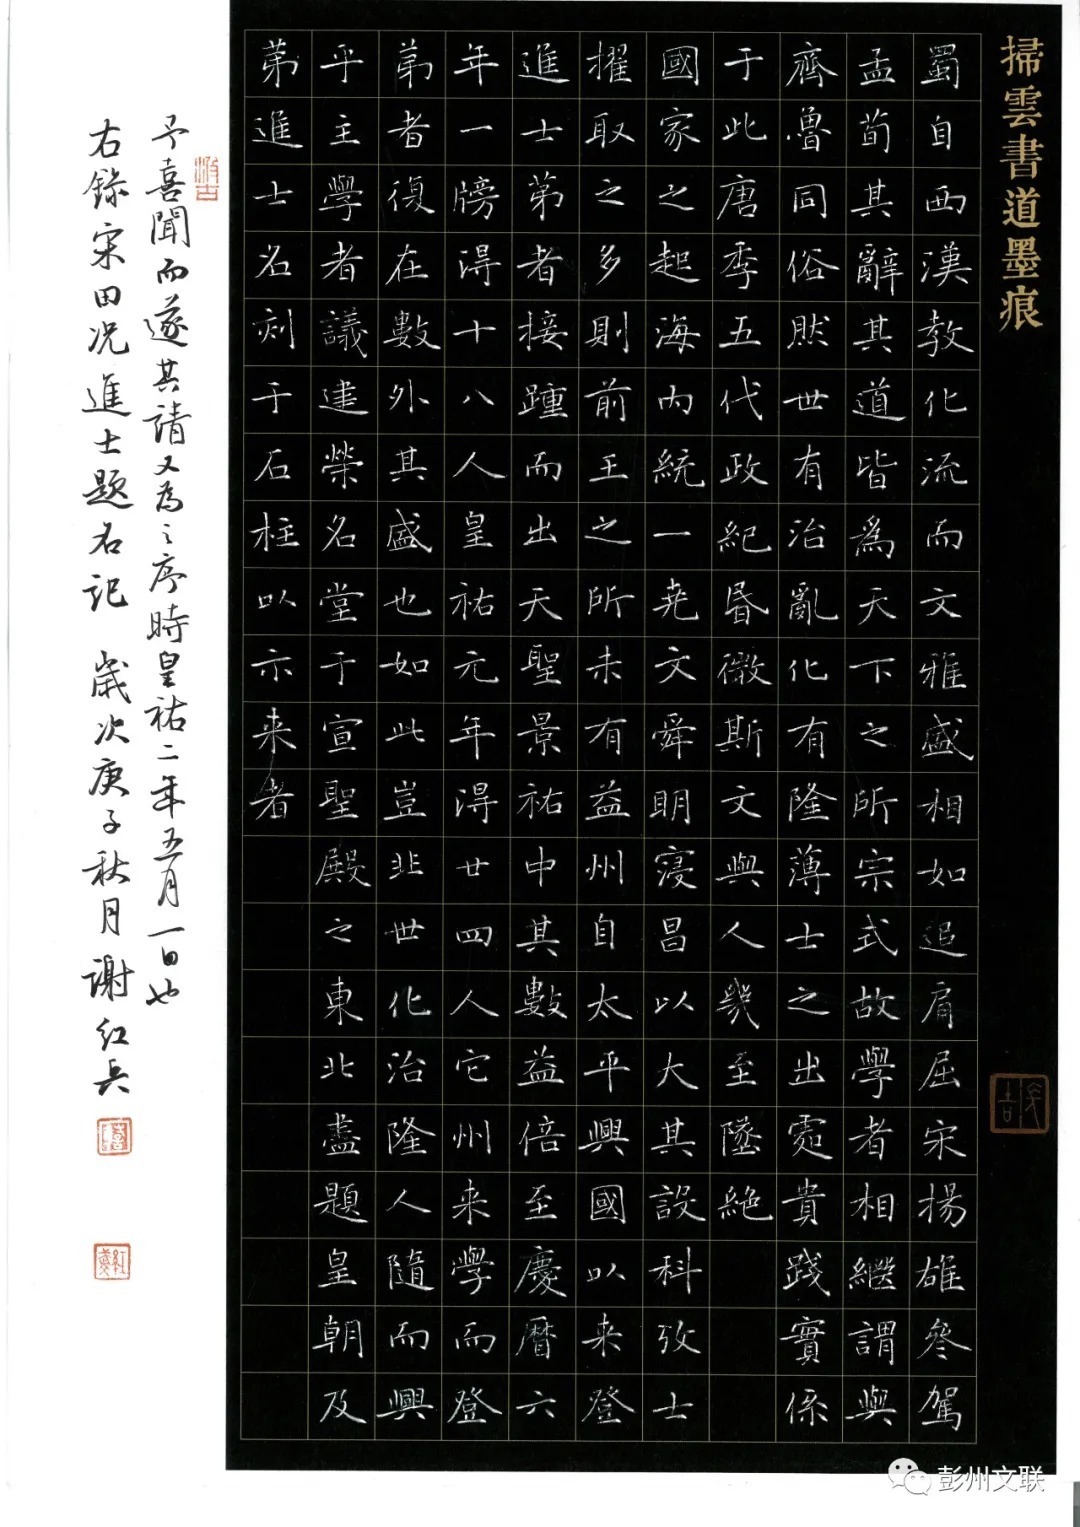 掃雲書道墨痕
蜀自西漢教化流而文雅盛相如追肩屈宋揚雄參駕
孟荀其辭其道皆為天下之所宗式故學者相繼謂與
齊魯同俗然世有治亂化有隆薄士之出處貴踐實係
于此唐季五代政紀昏微斯文與人幾至墜絶
國家之起海內統一堯文舜明寖昌以大其設科攷士
擢取之多則前王之所未有益州自太平興國以来登
進士第者接踵而出天聖景祐中其數益倍至慶曆六
年一牓得十八人皇祐元年得廿四人它州来學而登
第者復在數外其盛也如此豈非世化治隆人隨而興
乎主學者議建榮名堂于宣聖殿之東北盡題皇朝及
第進士名刻于石柱以示来者
予喜聞而遂其請又為之序時皇祐二年五月一日也
右錄宋田况進士题名記 歲次庚子秋月谢红兵
彭州文联